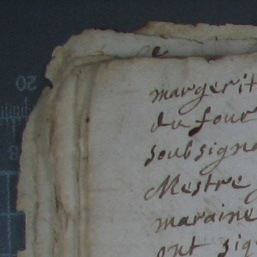 margerit
du four
soubsigna
Mestre
maraine
ont sig
20
8